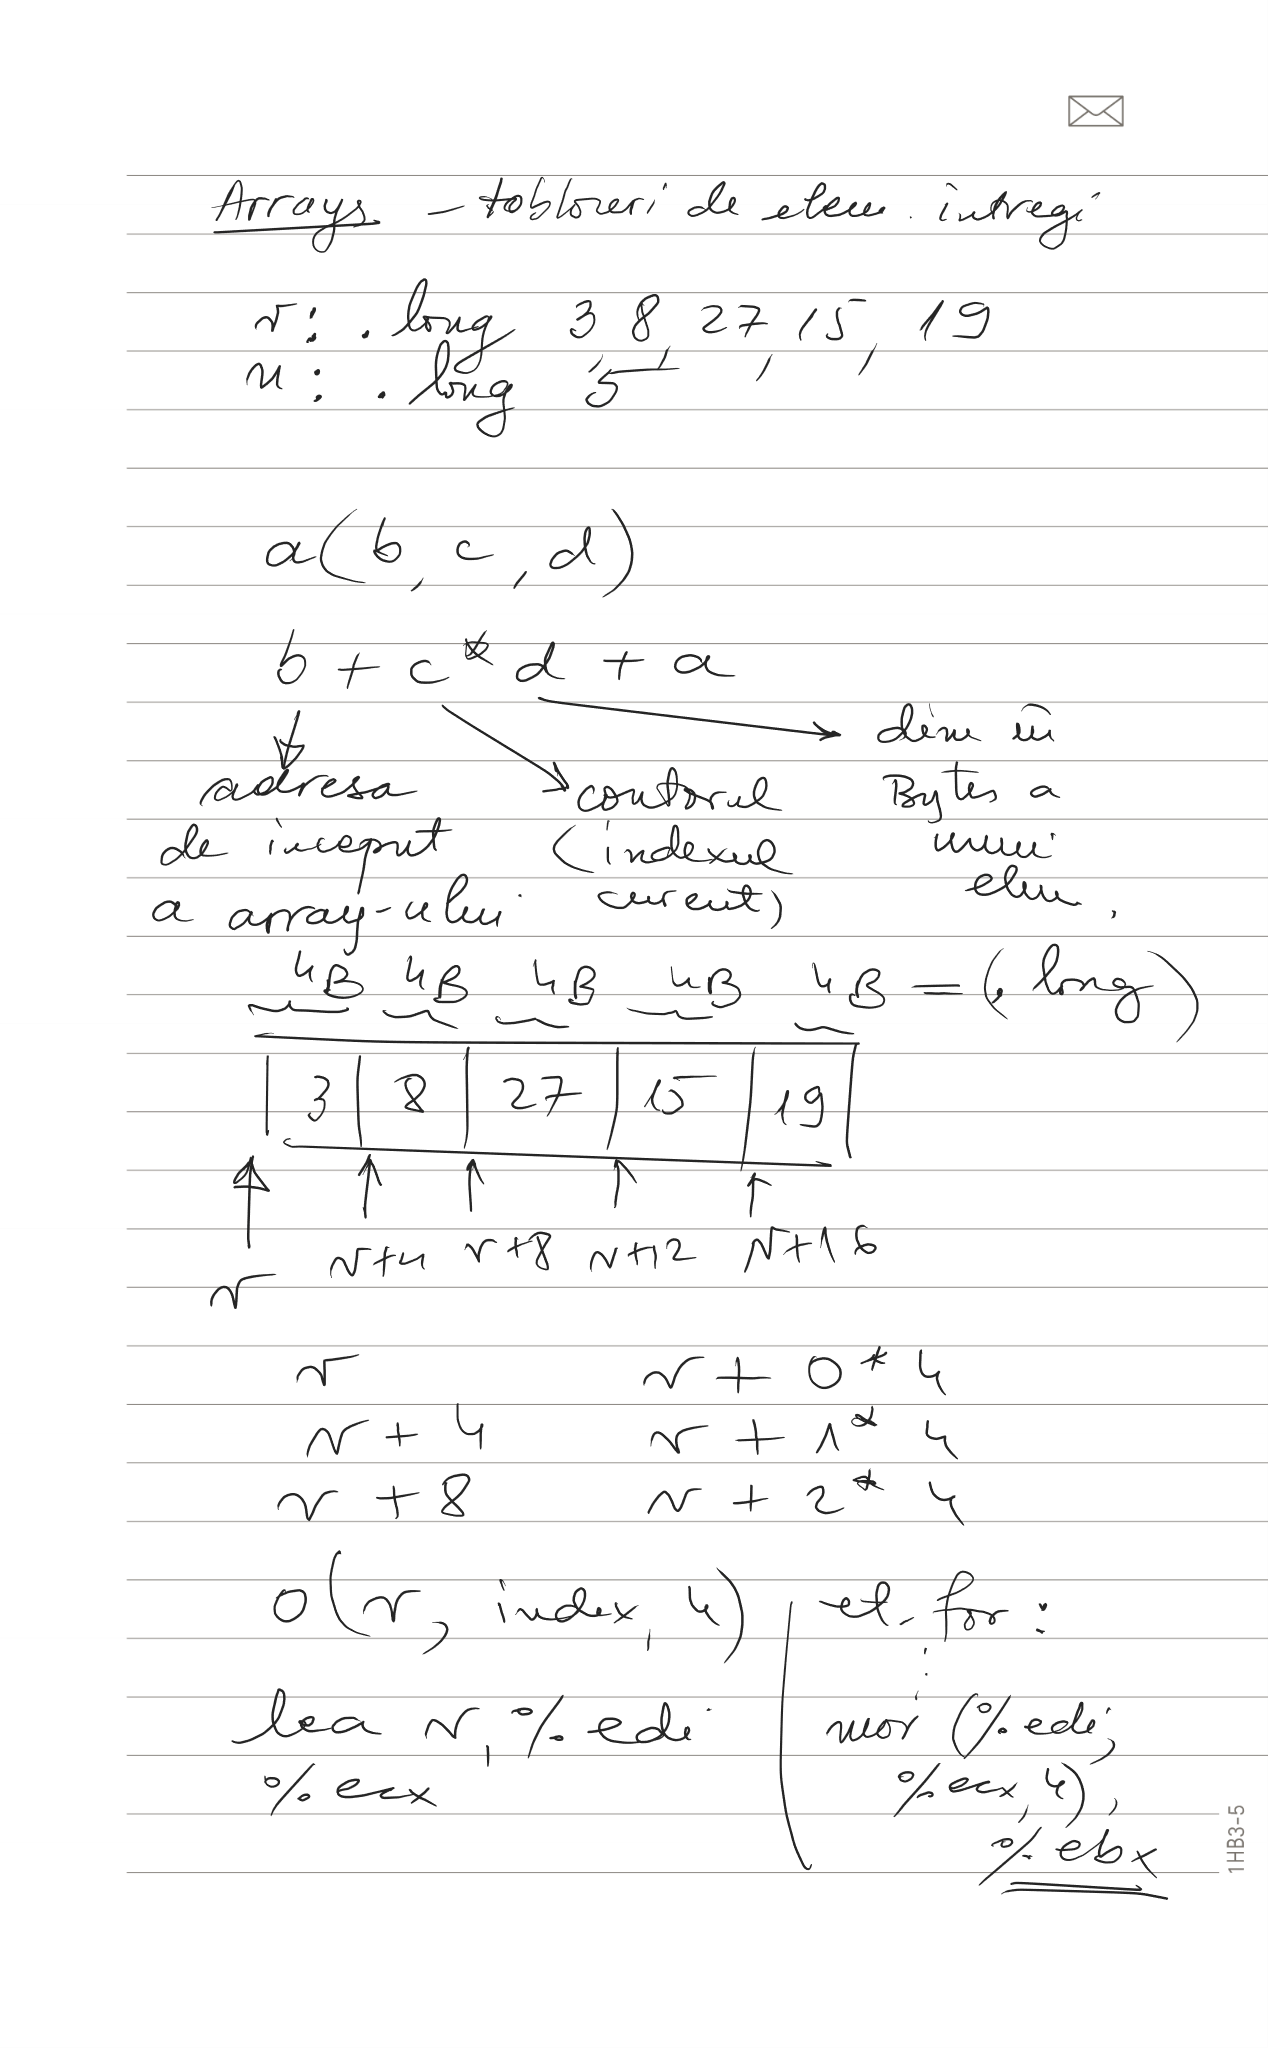 Arrays - tablouri de elem. întregi
v: .long 3, 8, 27, 15, 19
n: .long 5
a(b, c, d)
b + c * d + a
adresa de inceput a array-ului
contorul (indexul curent)
dim în Bytes a unui elem.
4B 4B 4B 4B 4B = (.long)
3 | 8 | 27 | 15 | 19
v v+4 v+8 v+12 v+16
v v + 0 * 4
v + 4 v + 1 * 4
v + 8 v + 2 * 4
0(v, index, 4)
lea v, %edi
%ecx
et_for:
⋮
mov (%edi,
%ecx, 4),
%ebx
1HB3-5